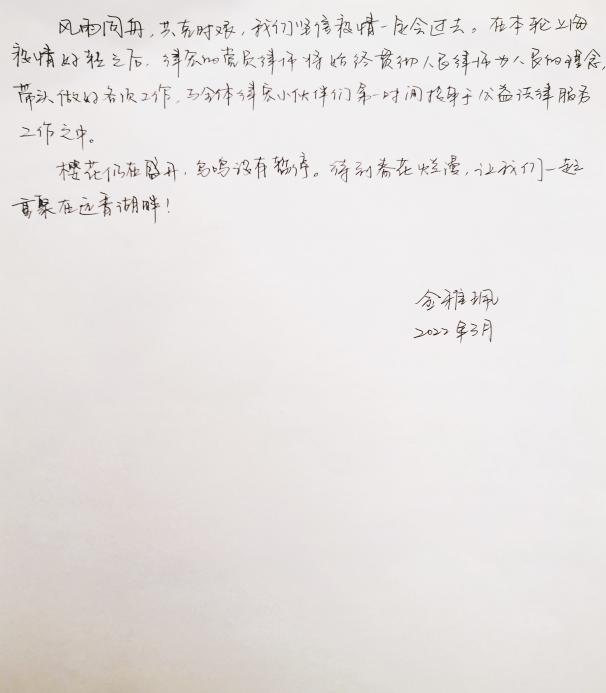 风雨同舟，共克时艰，我们坚信疫情一定会过去。在本轮上海
疫情好转之后，律众的党员律师将始终贯彻人民律师为人民的理念，
带头做好各项工作，与全体律众小伙伴们第一时间投身于公益法律服务
工作之中。
樱花仍在盛开，鸟鸣没有暂停。待到春花烂漫，让我们一起
重聚在远香湖畔！
金雅珮
2022年3月